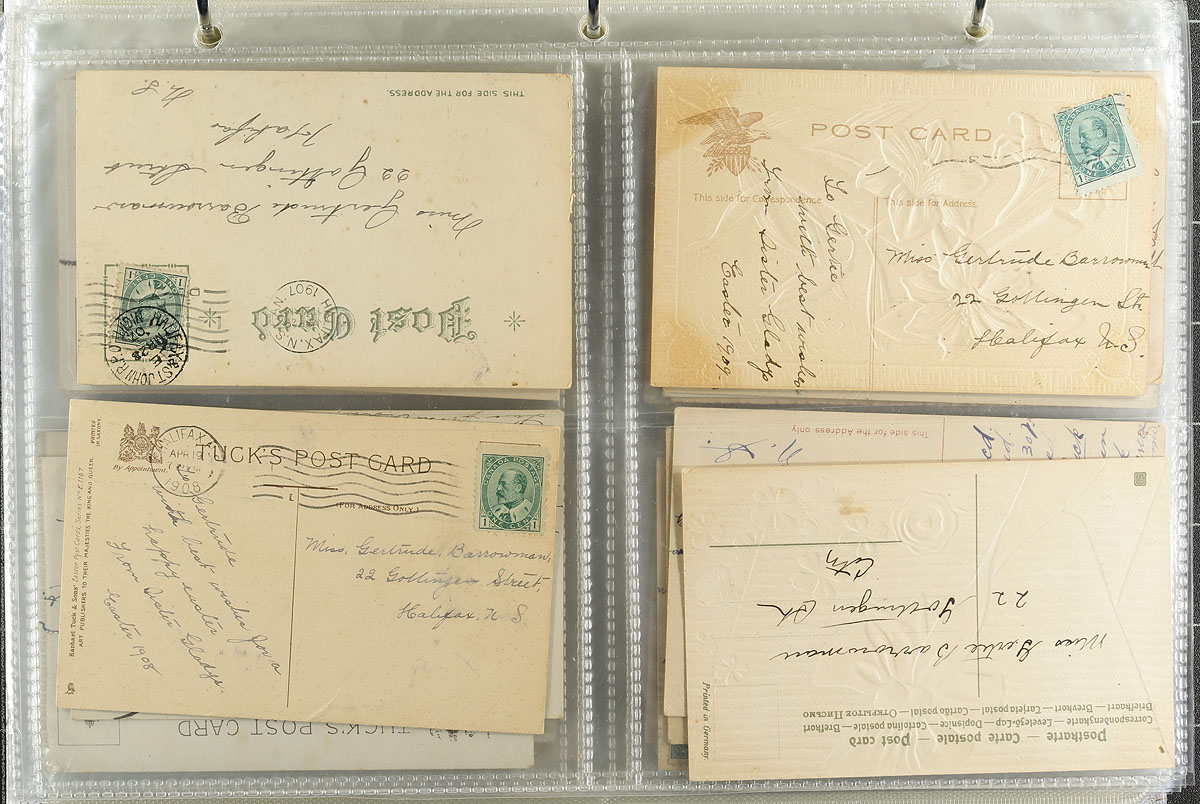 THIS SIDE FOR THE ADDRESS.
Post Card
Miss Gertrude Barrowman
22 Gottingen Street
Halifax
N.S.
HALIFAX, N.S.
1907
ST JOHN R.P.O.
POST CARD
This side for Correspondence
This side for Address.
To Gertie
with best wishes
from sister Gladys
Easter 1909.
Miss Gertrude Barrowman
22 Gottingen St.
Halifax N.S.
CANADA POSTAGE
1 1
ONE CENT
PRINTED IN SAXONY.
By Appointment.
TUCK'S POST CARD
(FOR ADDRESS ONLY.)
HALIFAX
APR 19
1908
Raphael Tuck & Sons' Easter Post Cards, Series No E 1167
ART PUBLISHERS TO THEIR MAJESTIES THE KING AND QUEEN.
To Gertrude
with best wishes for a
happy easter
from Sister Gladys.
Easter 1908
Miss, Gertrude, Barrowman,
22 Gottingen Street,
Halifax, N S.
CANADA POSTAGE
1 1
ONE CENT
TUCK'S POST CARD
This side for the Address only
Postkarte — Carte postale — Post card
Correspondenzkarte — Levelező-Lap — Dopisnice — Cartolina postale — Brefkort
Briefkaart — Brevkort — Tarjeta postal — Cartão postal — Открытое Письмо
Miss Gertie Barrowman
22 Gottingen St
City
Printed in Germany.